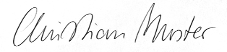 Christian Muster